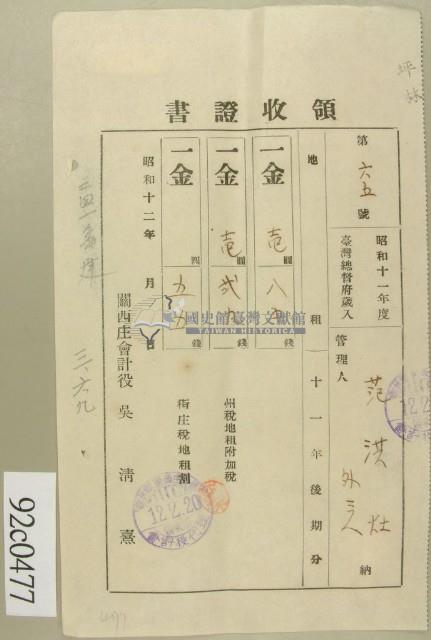 領收證書
坪林
第六五號
昭和十一年度
臺灣總督府歲入
管理人 范洪灶 外三人 納
地租 十一年後期分
一金 壱圓八五錢
一金 壱圓弐九錢
州稅地租附加稅
一金 圓五五錢
街庄稅地租割
昭和十二年 月 日
關西庄會計役 吳清熹
12.2.20
12.2
三、六九
國史館臺灣文獻館
TAIWAN HISTORICA
92c0477